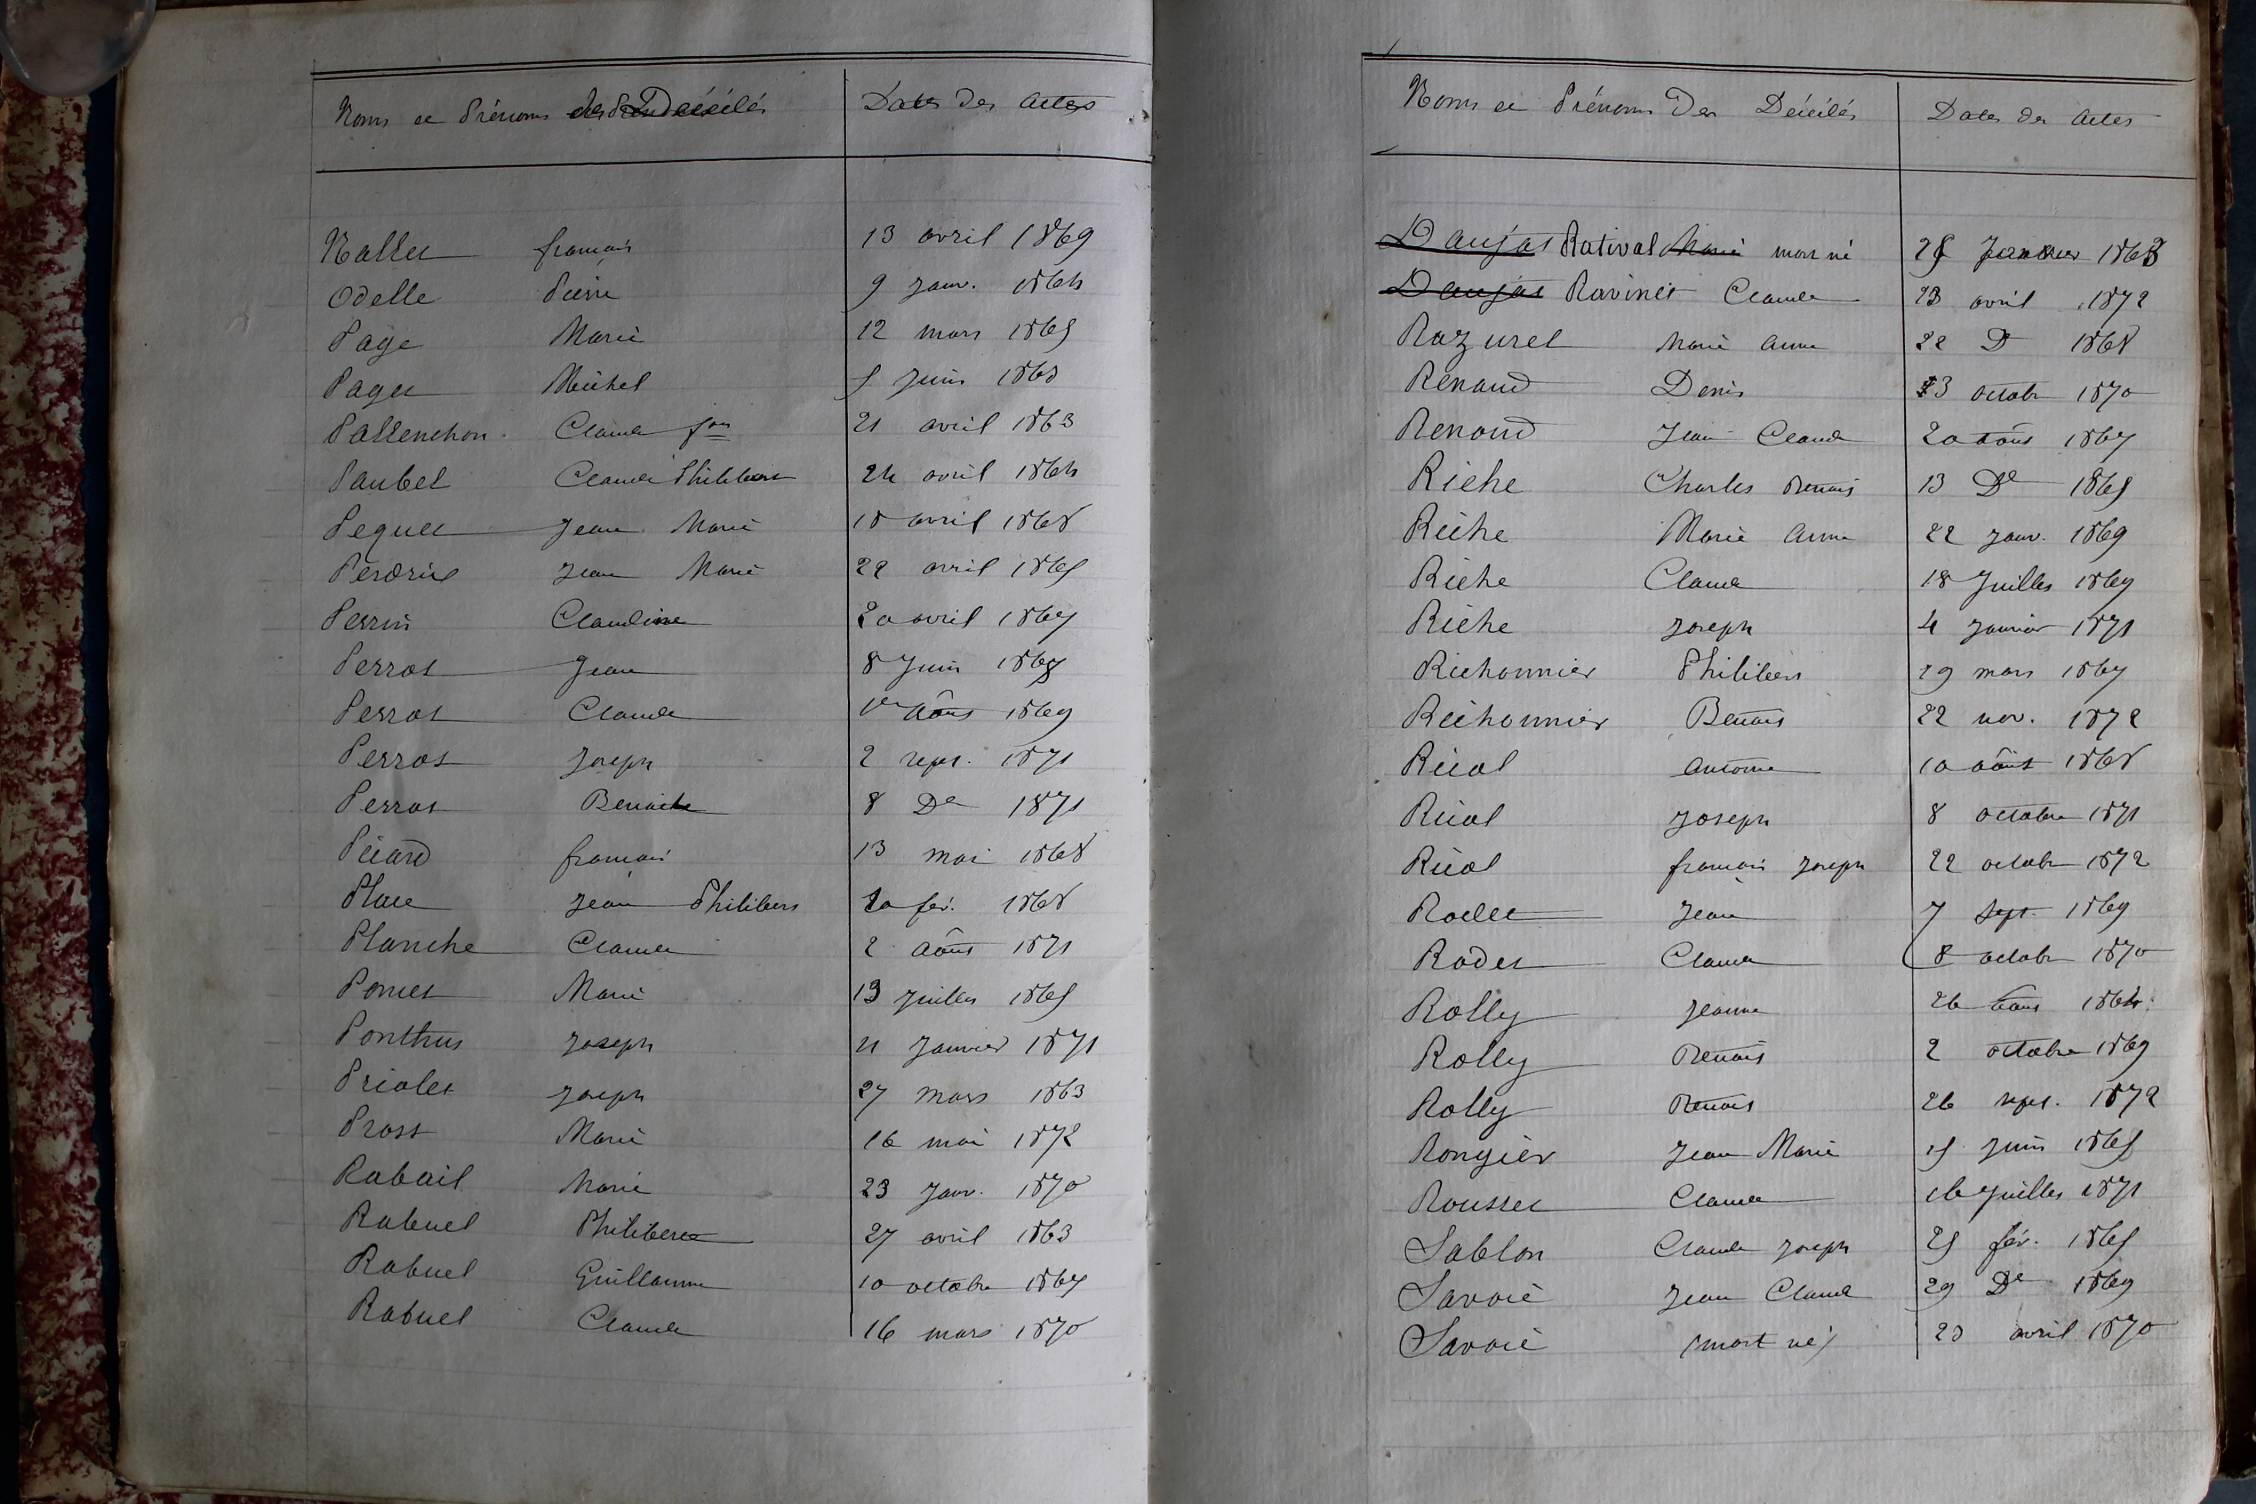 Noms et Prénoms des Décédés Dates des Actes
Nallet françois 13 avril 1869
Odelle Pierre 9 Janv. 1864
Page Marie 12 mars 1865
Paget Michel 5 Juin 1865
Pallenchon Claude fois 21 avril 1863
Paubel Claude Philibert 24 avril 1864
Pequet Jean Marie 18 avril 1868
Perdrix Jean Marie 22 avril 1865
Perrin Claudine 20 avril 1867
Perrot Jean 8 Juin 1868
Perrot Claude 1er Août 1869
Perrot Joseph 2 sept. 1871
Perrot Benoite 8 De 1871
Picard françois 13 mai 1868
Place Jean Philibert 20 fév. 1868
Planche Claude 2 Août 1871
Pomet Marie 13 Juillet 1865
Ponthus Joseph 21 Janvier 1871
Priolet Joseph 27 mars 1863
Prost Marie 16 mai 1872
Rabail Marie 23 Janv. 1870
Rabuel Philiberte 27 avril 1863
Rabuel Guillaume 10 octobre 1867
Rabuel Claude 16 mars 1870
Noms et Prénoms Des Décédés Dates des Actes
Danjas Ratival Marie mort né 25 Janvier 1863
Danjas Ravinet Claude 23 avril 1872
Razurel Marie Anne 22 D 1868
Renaud Denis 13 octobre 1870
Renaud Jean Claude 20 Août 1867
Riche Charles Benoit 13 De 1865
Riche Marie Anne 22 Janv. 1869
Riche Claude 18 Juillet 1869
Riche Joseph 4 Janvier 1871
Richonnier Philibert 29 mars 1867
Richonnier Benoit 22 nov. 1872
Ricol Antoine 10 Août 1868
Ricol Joseph 8 octobre 1871
Ricol françois Joseph 22 octobre 1872
Rodet Jean 7 Sept. 1869
Rodet Claude 8 octobre 1870
Rolly Jeanne 26 Août 1864
Rolly Benoit 2 octobre 1869
Rolly Benoit 26 sept. 1872
Rongier Jean Marie 15 Juin 1865
Rousset Claude 16 Juillet 1871
Sablon Claude Joseph 25 fév. 1865
Savoie Jean Claude 29 De 1869
Savoie (mort né) 23 avril 1870